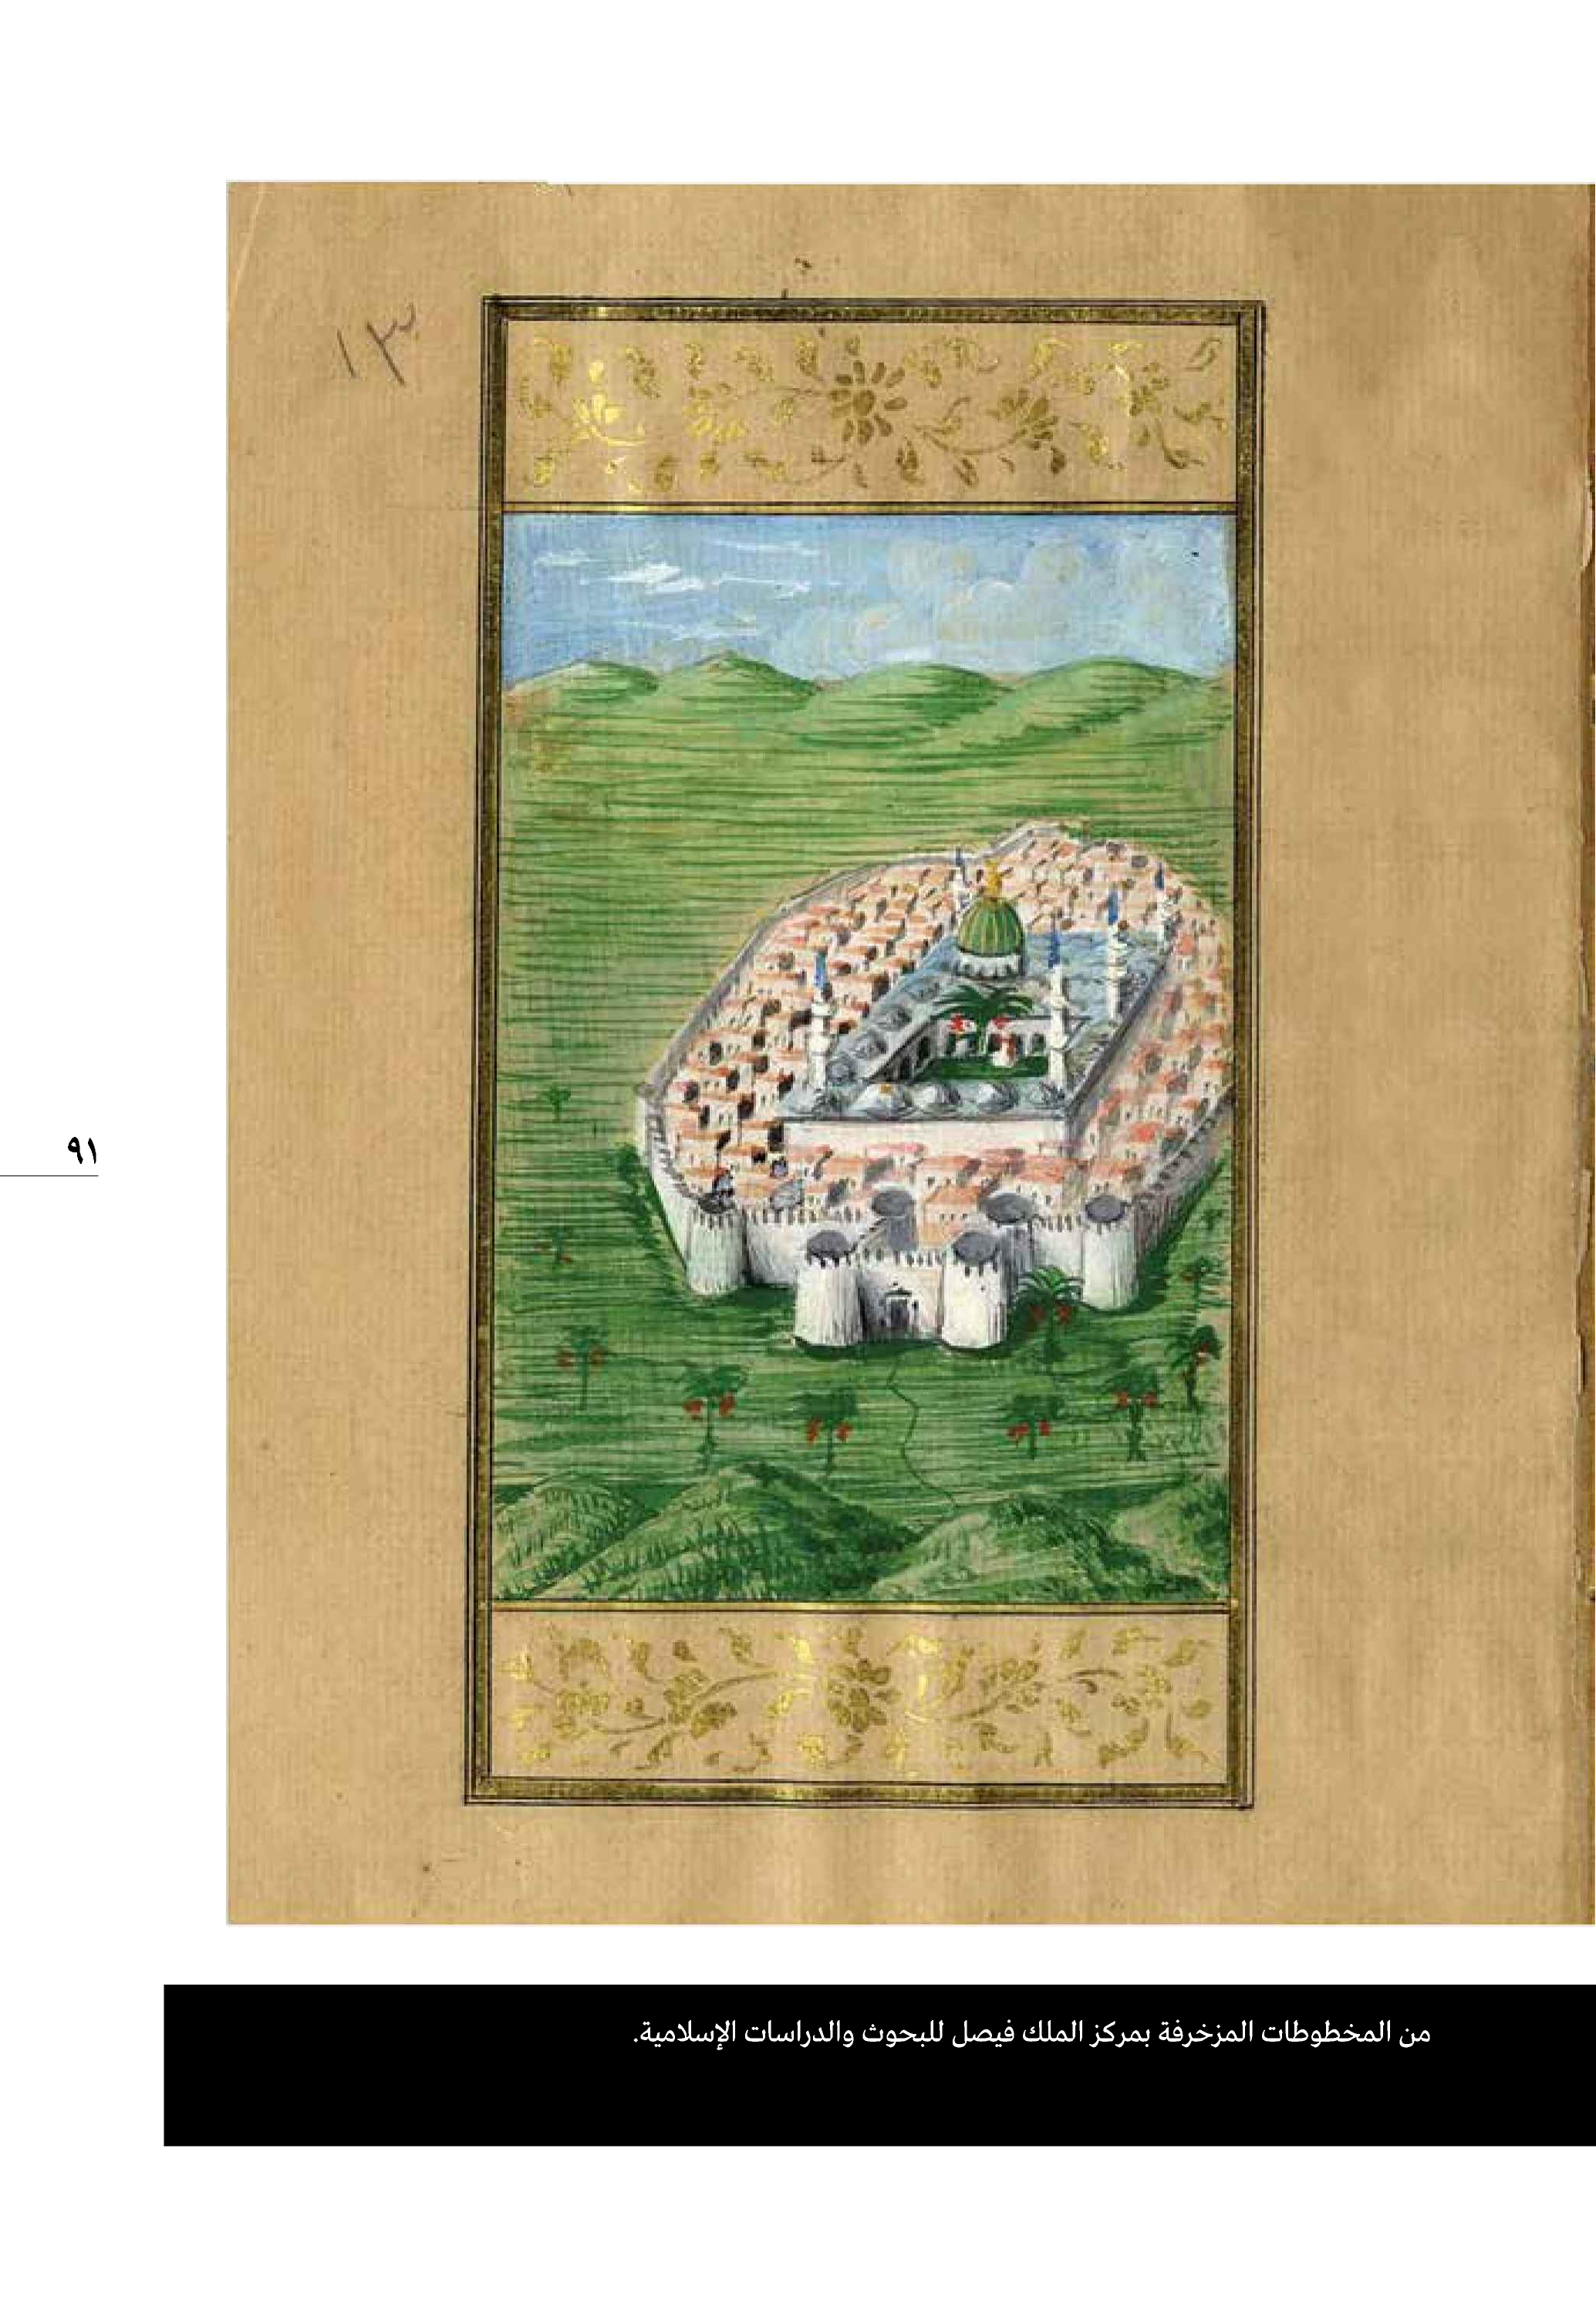 ١٣
٩١
من المخطوطات المزخرفة بمركز الملك فيصل للبحوث والدراسات الإسلامية.